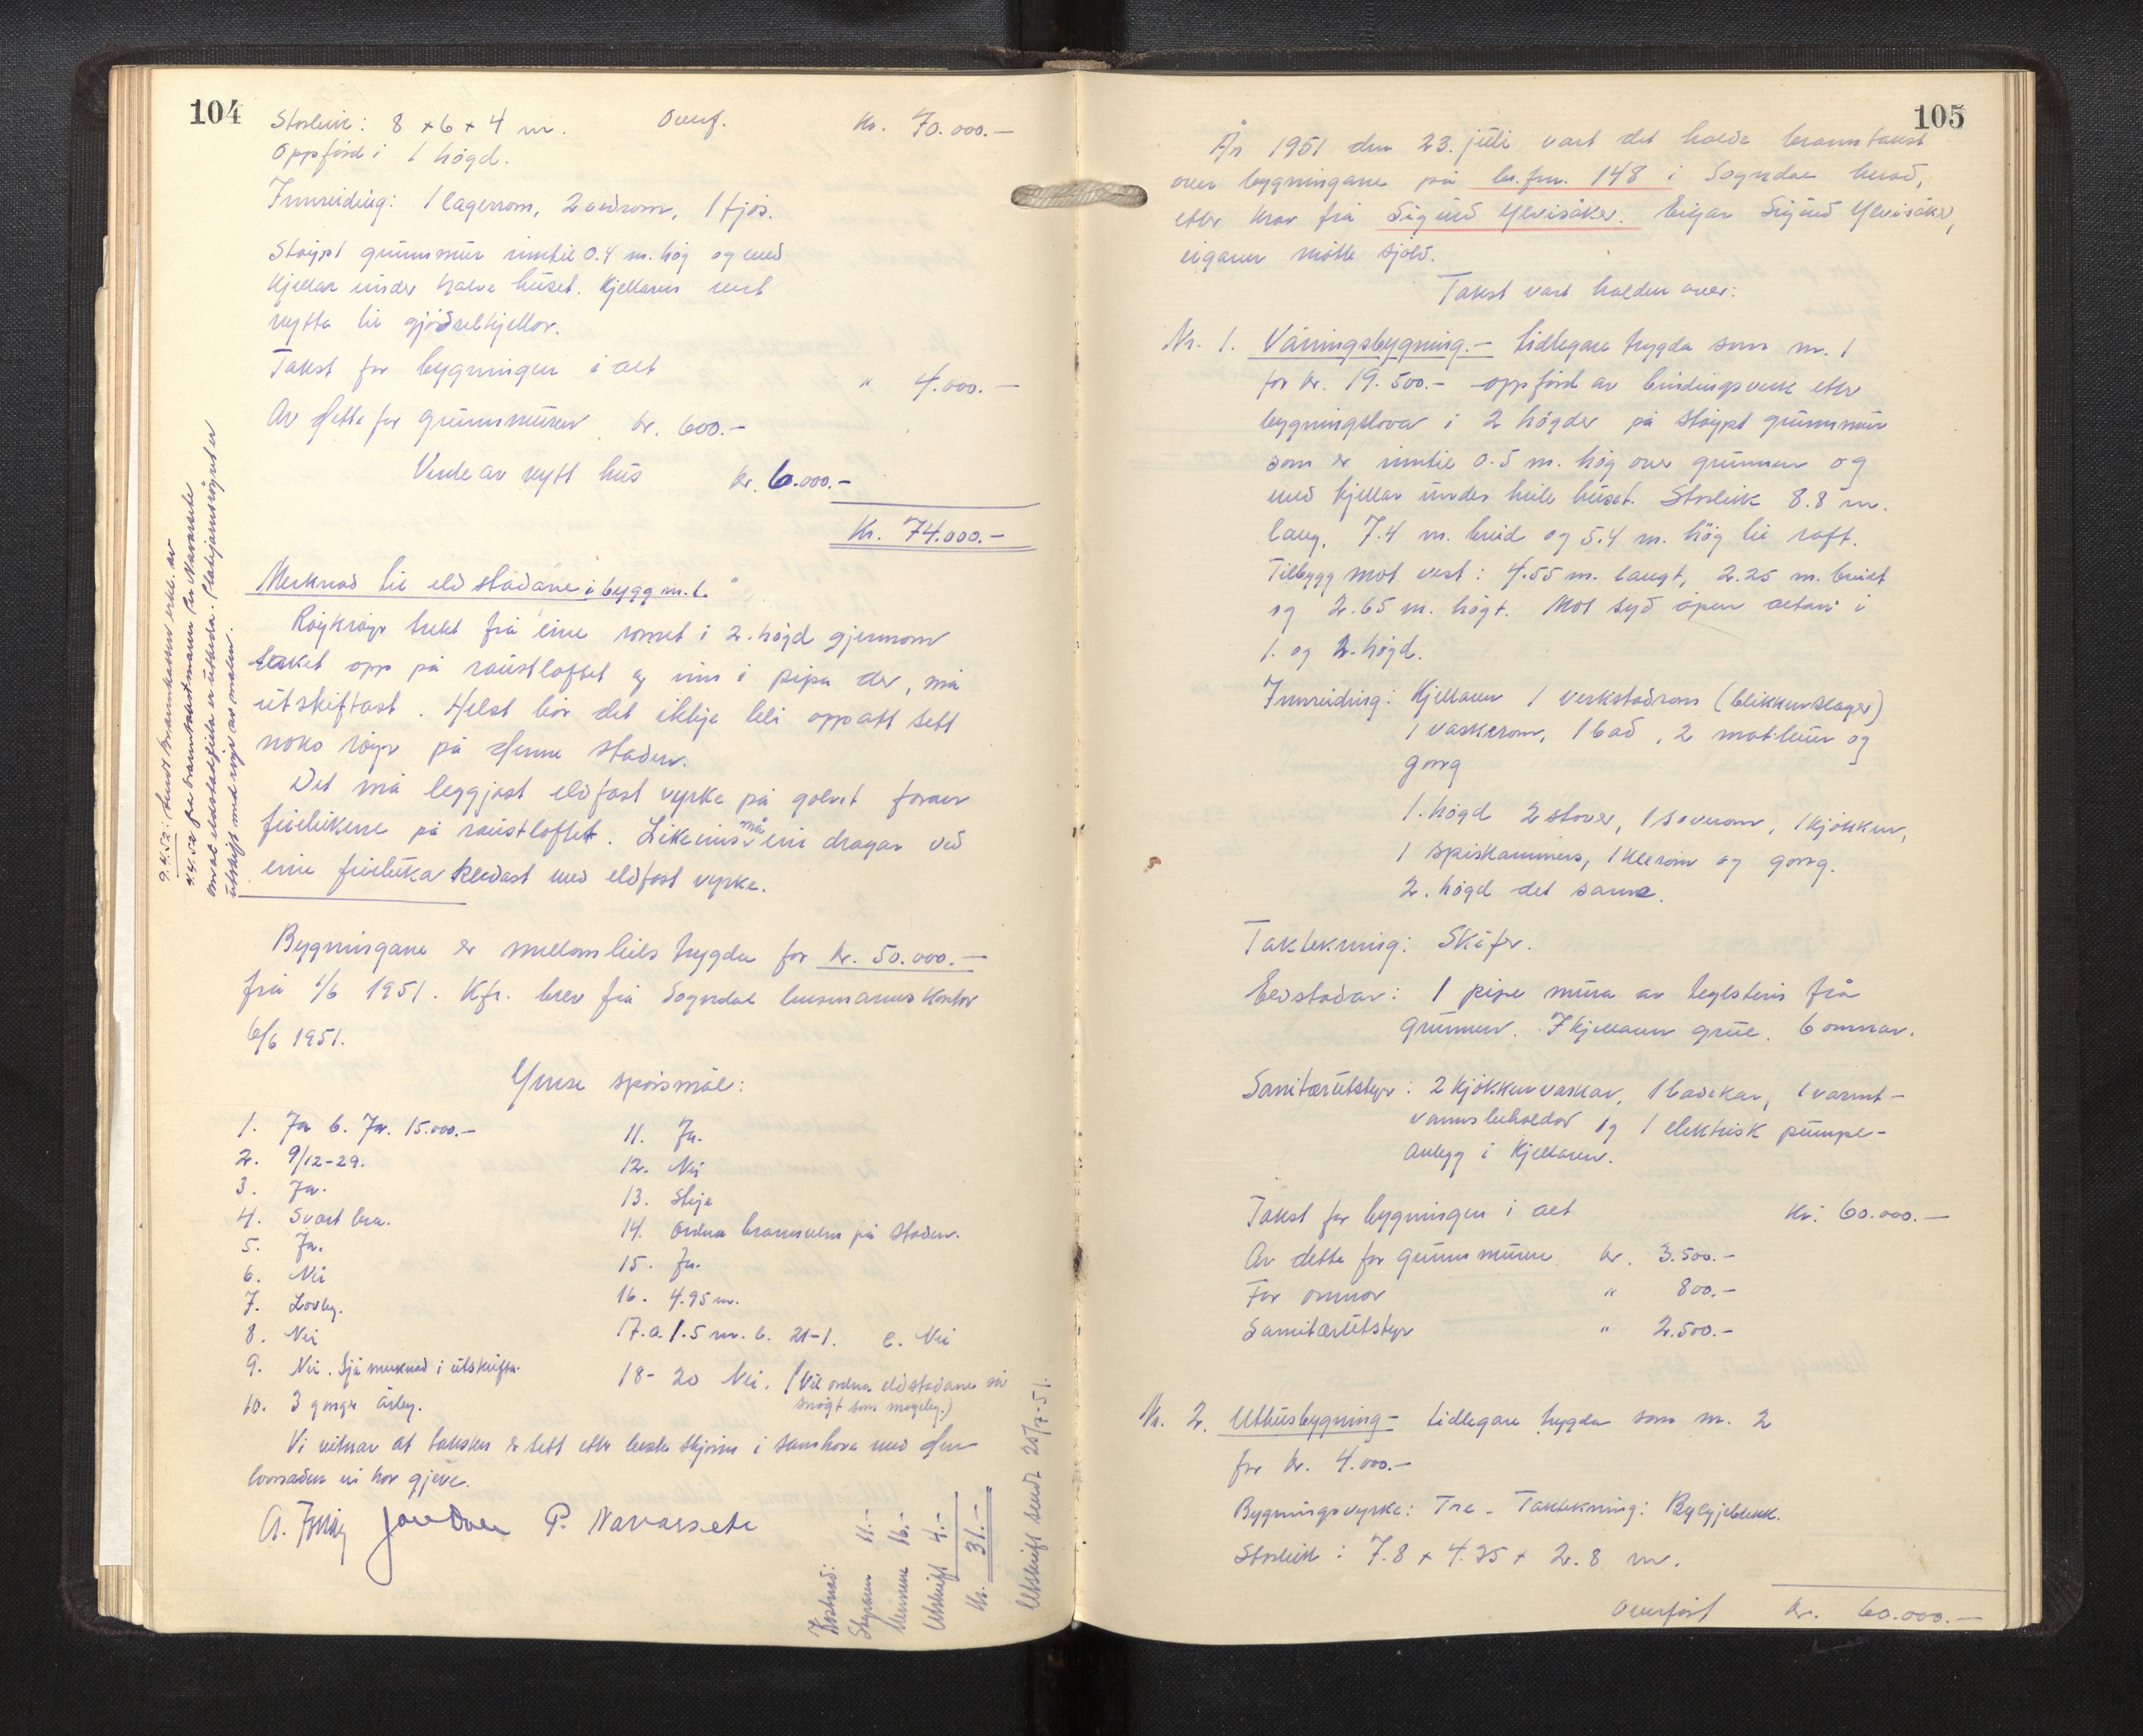 104
Storleik: 8 x 6 x 4 m. Overf. Kr. 70.000.-
Oppførd i 1 høgd.
Innreiding: 1 lagerrom, 2 vedrom, 1 fjøs.
Støypt grunnmur inntil 0.4 m. høg og med
kjellar under halve huset. Kjellaren vert
nytta til gjødselkjellar.
Takst for bygningen i alt " 4.000.-
Av dette for grunnmuren kr. 600.-
Verde av nytt hus kr. 6.000.-
Kr. 74.000.-
Merknad til eldstadane i bygg nr. 1.
Røykrøyr trekt frå eine romet i 2. høgd gjennom
taket opp på raustloftet og inn i pipa der, må
utskiftast. Helst bør det ikkje bli oppatt sett
noko røyr på denne staden.
Det må leggjast eldfast vyrke på golvet framfor
feielukene på raustloftet. Likeeins må ein dragar ved
eine feieluka kledast med eldfast vyrke.
9.4.52: Sendt Brannkassen erkl. av
4.4.52 frå brannkastmann Per Navarsete
om at eldstadfeila er utbetra. Platejarnsrøyret er
utskift med røyr av malm.
Bygningane er mellombels trygda for kr. 50.000.-
frå 1/6 1951. Kfr. brev frå Sogndal lensmannskontor
6/6 1951.
Ymse spørsmål:
1. Ja b. Ja. 15.000.-
2. 9/12-29.
3. Ja.
4. Svært bra.
5. Ja.
6. Nei
7. Lovleg.
8. Nei
9. Nei. Sjå merknad i utskrifta.
10. 3 gonger årleg.
11. Ja.
12. Nei
13. Ikkje
14. Ordna brannvern på staden.
15. Ja.
16. 4.95 m.
17. a. 1.5 m. b. 21-1. c. Nei
18-20 Nei. (Vil ordna eldstadane så
snøgt som mogeleg.)
Vi vitnar at taksten er sett etter beste skjøn i samhøve med den
lovnaden vi har gjeve.
P. Navarsete
Kostnad:
Skjønnsm. 11.-
Mennene 16.-
Utskrift 4.-
Kr. 31.-
Utskrift sendt 25/7-51.
105
År 1951 den 23. juli vart det halde branntakst
over bygningane på br.fnr. 148 i Sogndal herad,
etter krav frå Sigurd Ylvisåker. Eigar Sigurd Ylvisåker,
eigaren møtte sjølv.
Takst vart halden over:
Nr. 1. Våningsbygning.- tidlegare trygda som nr. 1
for kr. 19.500.- oppførd av bindingsverk etter
bygningslova i 2 høgder på støypt grunnmur
som er inntil 0.5 m. høg over grunnen og
med kjellar under heile huset. Storleik 8.8 m.
lang, 7.4 m. breid og 5.4 m. høg til raft.
Tilbygg mot vest: 4.55 m. langt, 2.25 m. breitt
og 2.65 m. høgt. Mot syd open altan i
1. og 2. høgd.
Innreiding: Kjellaren 1 verkstadrom (blikkenslager)
1 vaskerom, 1 bad, 2 matbuer og
gong
1. høgd 2 stover, 1 soverom, 1 kjøkken,
1 spiskammers, 1 klerom og gong.
2. høgd det same.
Taktekning: Skifer.
Eldstadar: 1 pipe mura av teglstein frå
grunnen. I kjellaren grue. 6 omnar.
Sanitærutstyr: 2 kjøkkenvaskar, 1 badekar, 1 varmt-
vannsbeholdar og 1 elektrisk pumpe-
anlegg i kjellaren.
Takst for bygningen i alt kr. 60.000.-
Av dette for grunnmuren kr. 3.500.-
For omnar " 800.-
Sanitærutstyr " 2.500.-
Nr. 2. Uthusbygning - tidlegare trygda som nr. 2
for kr. 4.000.-
Bygningsvyrke: Tre - Taktekning: Bylgjeblekk.
Storleik: 7.8 x 4.35 x 2.8 m.
Overført kr. 60.000.-